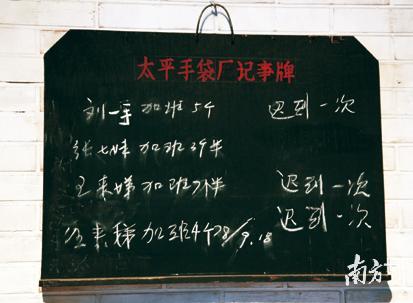 太平手袋厂记事牌
刘一手 加班5个 迟到一次
张七妹 加班39半
王来娣 加班7件 迟到一次
加班4个 78/9.18 迟到一次
南方